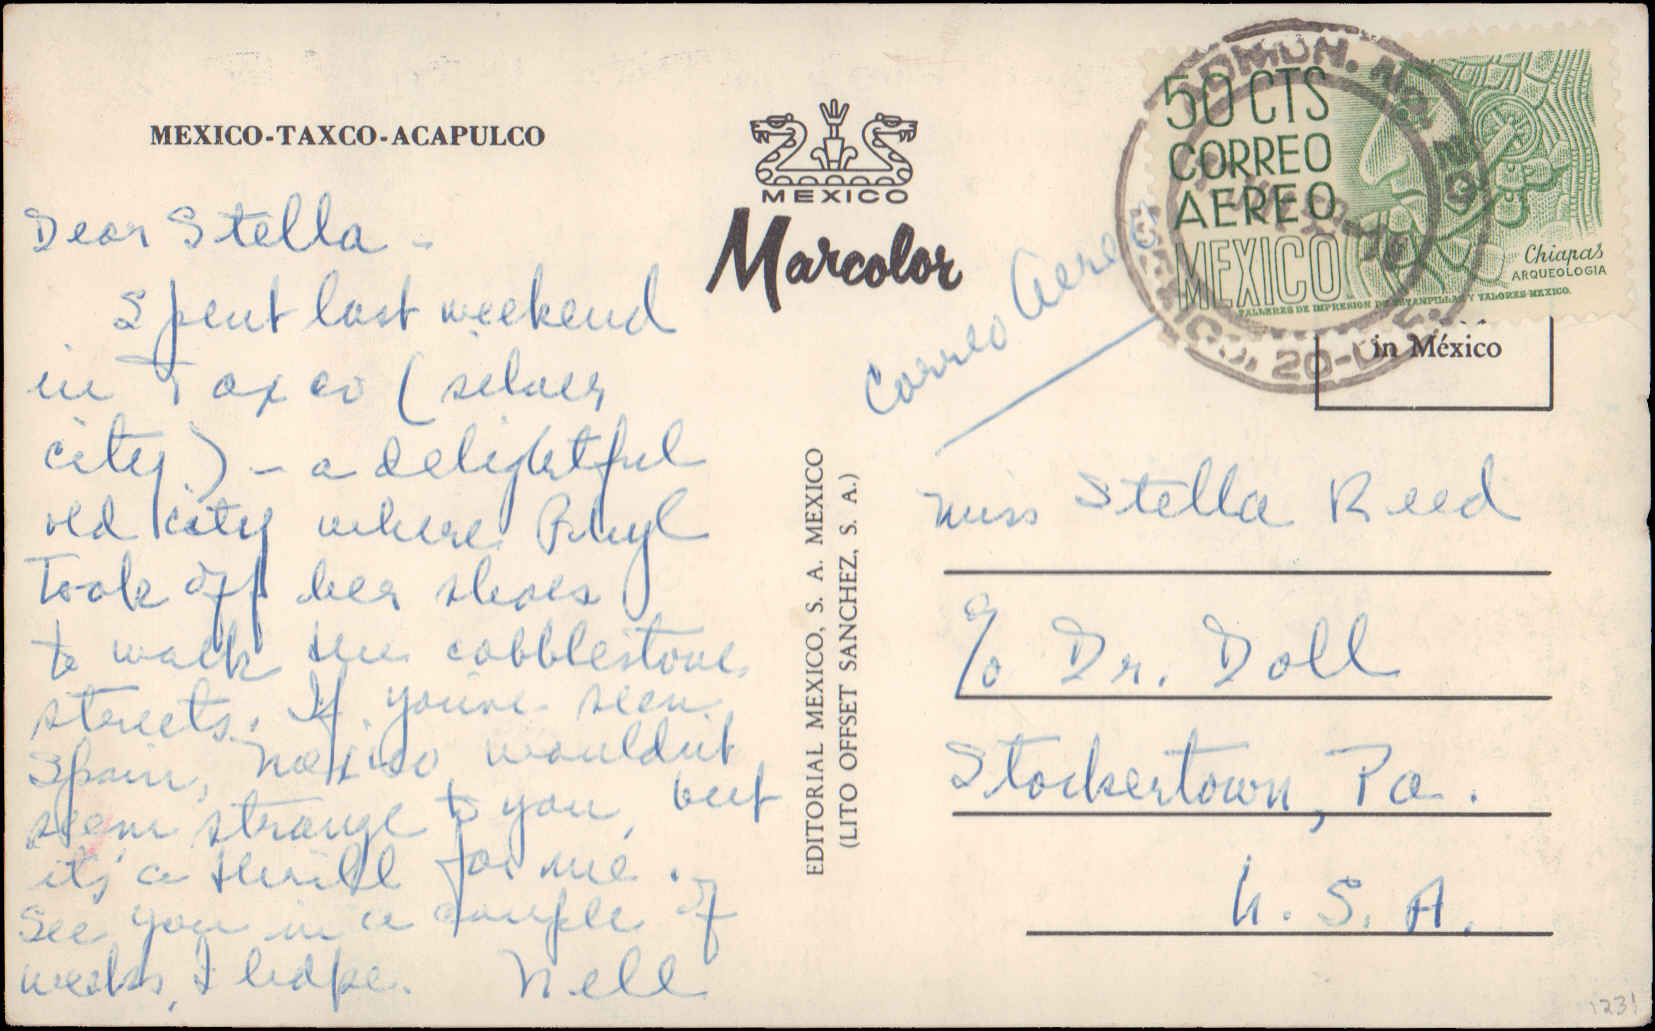 MEXICO-TAXCO-ACAPULCO
Dear Stella -
Spent last weekend
in Taxco (silver
city) - a delightful
old city where Phyl
took off her shoes
to walk the cobblestone
streets. If you've seen
Spain, Mexico wouldn't
seem strange to you, but
it's a thrill for me.
See you in a couple of
weeks, I hope. Nell
MEXICO
Marcolor
EDITORIAL MEXICO, S. A. MEXICO
(LITO OFFSET SANCHEZ, S. A.)
Correo Aereo
50 CTS
CORREO
AEREO
MEXICO
Chiapas
ARQUEOLOGIA
TALLERES DE IMPRESION DE ESTAMPILLAS Y VALORES-MEXICO.
ADMON. NO. 20
in México
Miss Stella Reed
c/o Dr. Doll
Stockertown, Pa.
U. S. A.
1231